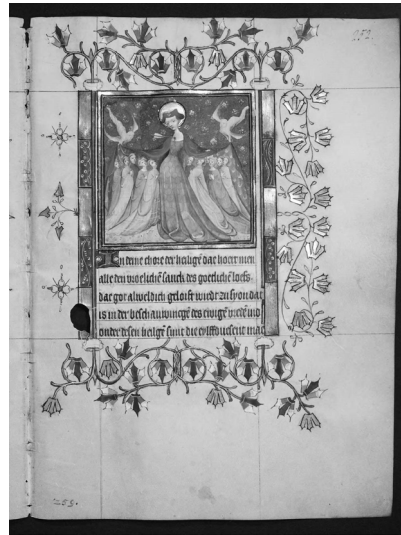 252.
In deme chore der heilgē dae hoert men
alle den vroelichē sanck des goetlichē loefs
dat got alweldich geloift wirdt zu syon dat
is in der beschauwingē des ewigē vredē ind
onder desen heilgē sint die eylffduseñt mae
259.